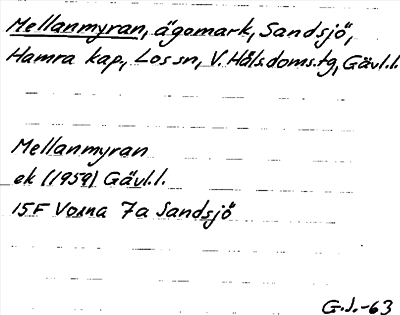 Mellanmyran, ägomark, Sandsjö,
Hamra kap., Los sn, V. Häls.doms.tg, Gävl.l.
Mellanmyran
ek (1959) Gävl.l.
15F Voxna 7a Sandsjö
G.J.-63